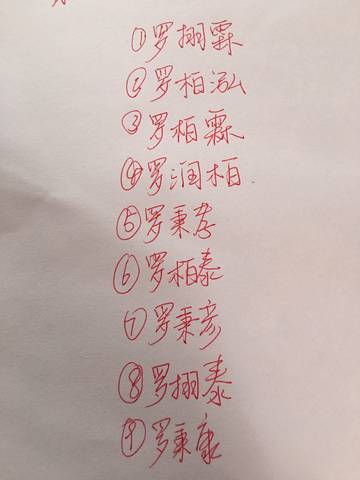 ①罗栩霖
②罗柏泓
③罗柏霖
④罗润柏
⑤罗秉孝
⑥罗柏泰
⑦罗秉彦
⑧罗栩泰
⑨罗秉康